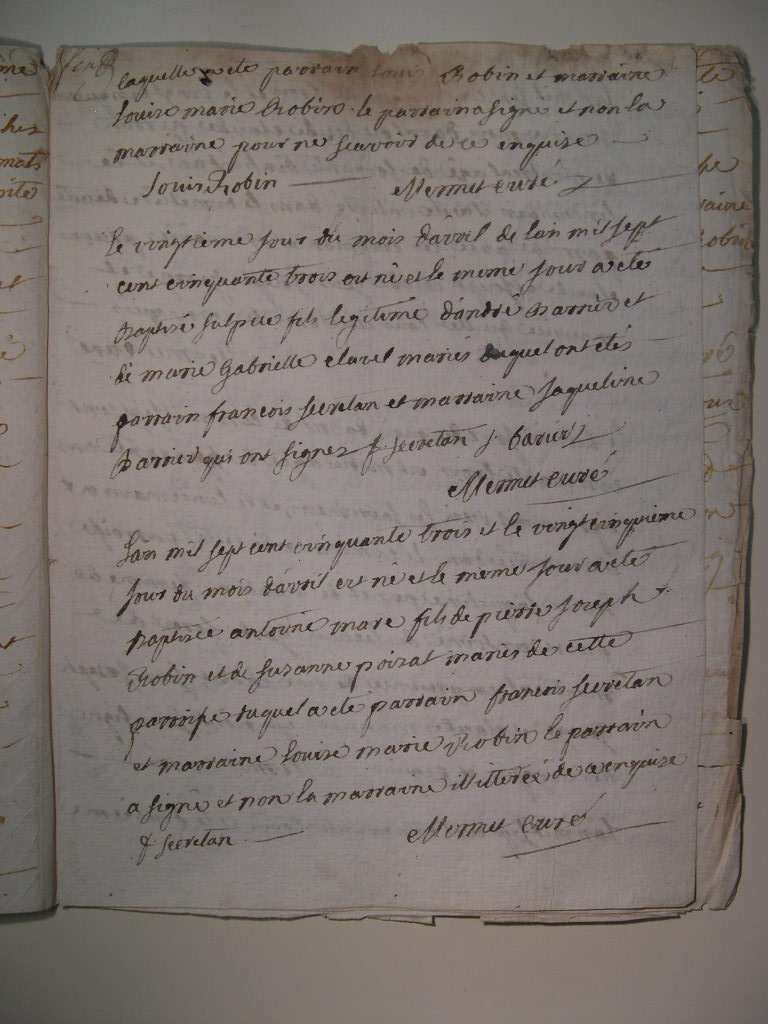 laquelle a ete parrain louis Robin et marraine
louise marie Robin. le parrain a signé et non la
marraine pour ne scavoir de ce enquise
Louis Robin Mermet curé
le vingtieme jour du mois d'avril de l'an mil sept
cent cinquante trois est né et le meme jour a ete
Baptisé sulpice fils legitime d'andré Barrier et
de marie Gabrielle clavel mariés duquel ont etés
parrain francois secretan et marraine Jaqueline
Barrier qui ont signez f. secretan j. barier
Mermet curé
Lan mil sept cent cinquante trois et le vingt cinquieme
jour du mois d'avril est né et le meme jour a ete
baptisée antoine marc fils de pierre joseph
Robin et de suzanne poizat mariés de cette
parroisse duquel a ete parrain francois secretan
et marraine louise marie Robin le parrain
a signé et non la marraine illitereé de ce enquise
f secretan Mermet curé